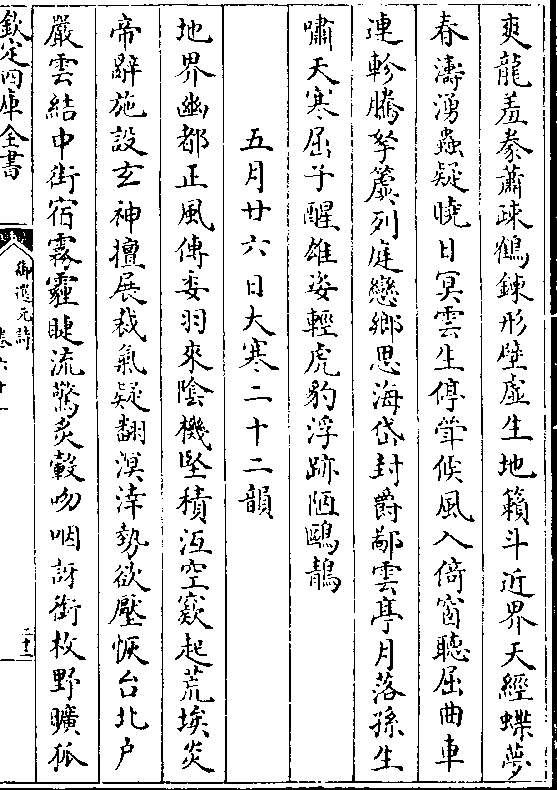 爽龍羞豢蕭疎鶴鍊形壁虛生地籟斗近界天經蝶夢
春濤湧蟲疑曉日冥雲生停聳候風入倚窗聽屈曲車
連軫騰拏簴列庭戀鄉思海岱封爵鄙雲亭月落孫生
嘯天寒屈子醒雄姿輕虎豹浮跡陋鷗鶄
五月廿六日大寒二十二韻
地界幽都正風傳委羽來陰機堅積沍空竅起荒埃炎
帝辭施設玄神擅展裁氣疑翻溟涬勢欲壓恢台北户
嚴雲結中街宿霧霾睫流驚炙轂吻咽訝銜枚野曠狐
欽定四庫全書
御選元詩